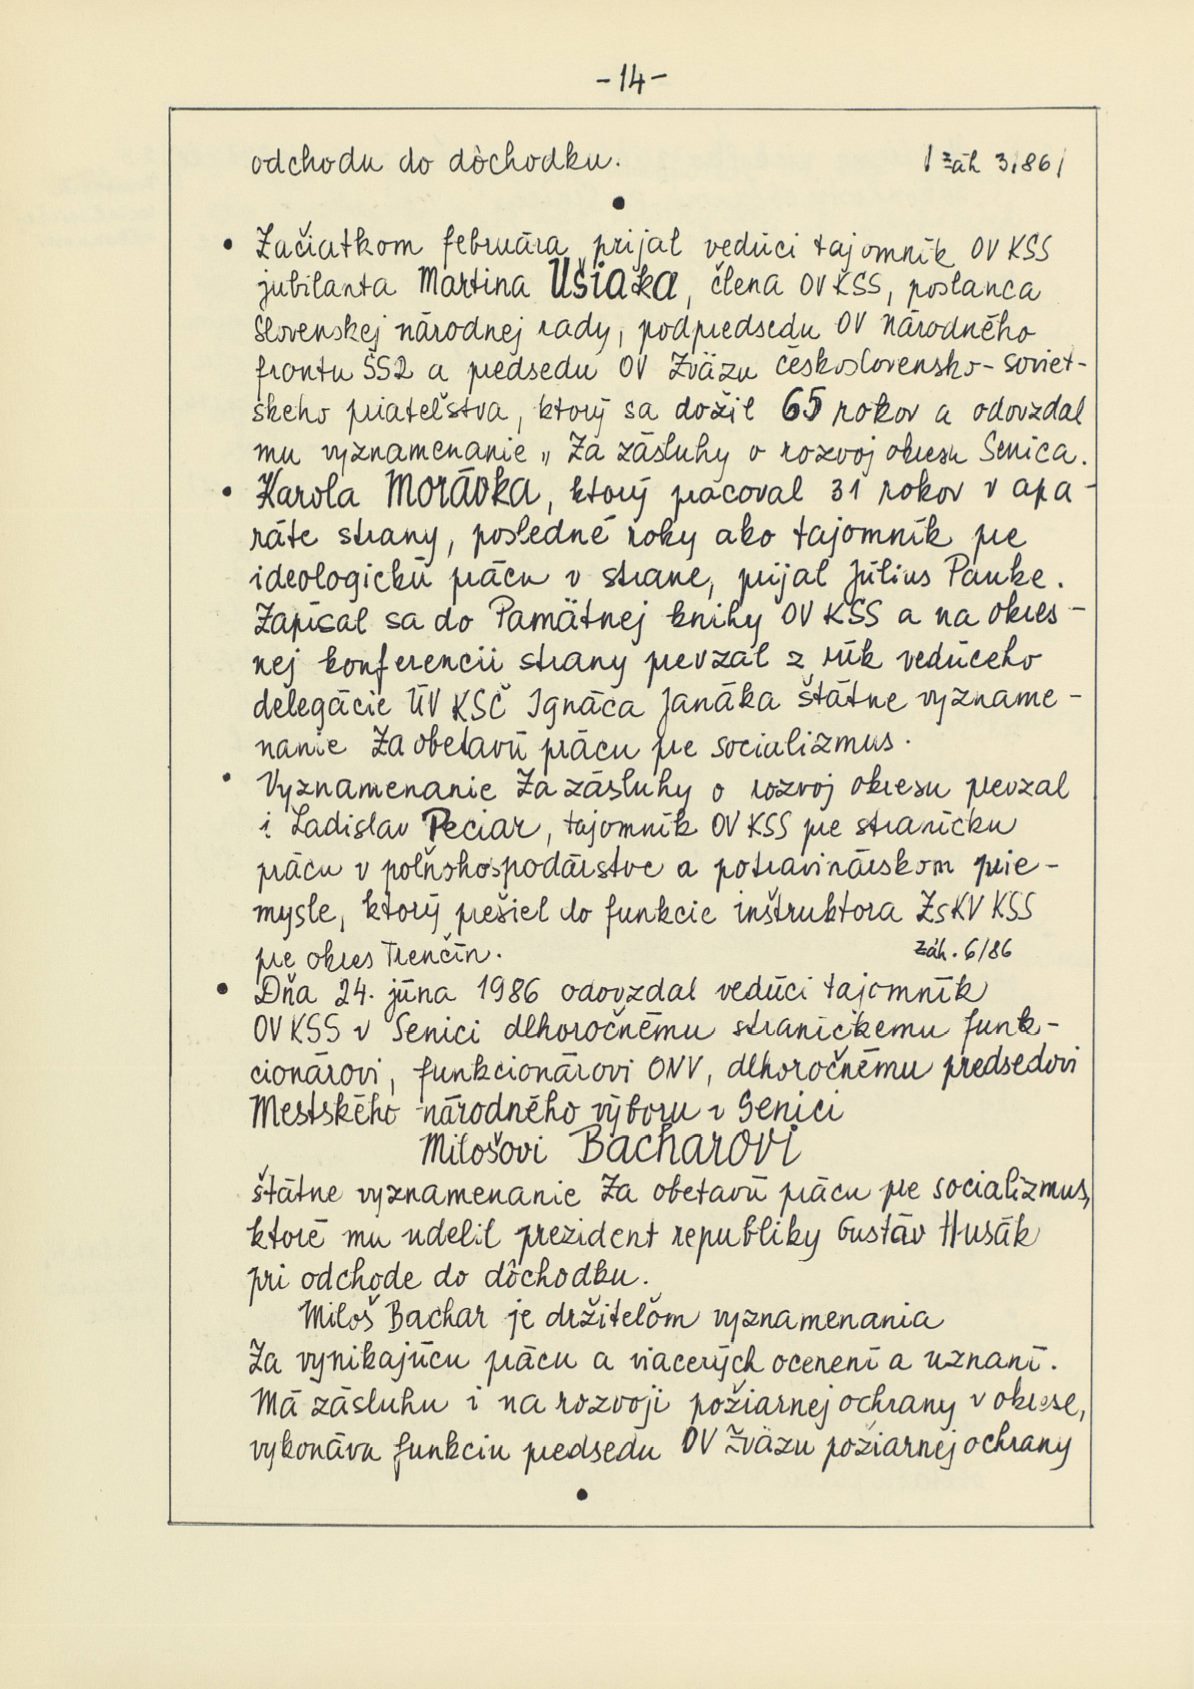 -14-
odchodu do dôchodku. / Záh 3/86/
• Začiatkom februára prijal vedúci tajomník OV KSS
jubilanta Martina Ušiaka, člena OV KSS, poslanca
Slovenskej národnej rady, podpredsedu OV Národného
frontu SSR a predsedu OV Zväzu československo-soviet-
skeho priateľstva, ktorý sa dožil 65 rokov a odovzdal
mu vyznamenanie „ Za zásluhy o rozvoj okresu Senica.
• Karola Morávka, ktorý pracoval 31 rokov v apa-
ráte strany, posledné roky ako tajomník pre
ideologickú prácu v strane, prijal Július Pauke.
Zapísal sa do Pamätnej knihy OV KSS a na okres-
nej konferencii strany prevzal z rúk vedúceho
delegácie ÚV KSČ Ignáca Janáka štátne vyzname-
nanie Za obetavú prácu pre socializmus.
• Vyznamenanie Za zásluhy o rozvoj okresu prevzal
i Ladislav Peciar, tajomník OV KSS pre stranícku
prácu v poľnohospodárstve a potravinárskom prie-
mysle, ktorý prešiel do funkcie inštruktora ZsKV KSS
pre okres Trenčín. Záh. 6/86
• Dňa 24. júna 1986 odovzdal vedúci tajomník
OV KSS v Senici dlhoročnému straníckemu funk-
cionárovi, funkcionárovi ONV, dlhoročnému predsedovi
Mestského národného výboru v Senici
Milošovi Bacharovi
štátne vyznamenanie Za obetavú prácu pre socializmus,
ktoré mu udelil prezident republiky Gustáv Husák
pri odchode do dôchodku.
Miloš Bachar je držiteľom vyznamenania
Za vynikajúcu prácu a viacerých ocenení a uznaní.
Má zásluhu i na rozvoji požiarnej ochrany v okrese,
vykonáva funkciu predsedu OV Zväzu požiarnej ochrany